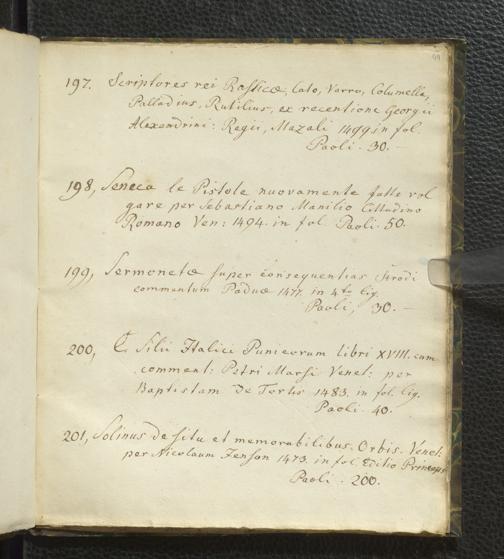 197. Scriptores rei Rusticæ, Cato, Varro, Columella,
Palladius, Rutilius, ex recentione Georgii
Alexandrini: Regii, Mazali 1499 in fol.
Paoli. 30.—
198, Seneca le Pistole nuovamente fatte vol
gare per Sebastiano Manilio Cittadino
Romano Ven: 1494. in fol. Paoli. 50.
199, Sermonetæ super consequentias Strodi
commentum Paduæ 1477. in 4to lig.
Paoli, 30.—
200, C. Silii Italici Punicorum libri XVIII. cum
comment: Petri Marsi Venet: per
Baptistam de Tortis 1483. in fol. lig.
Paoli. 40.
201, Solinus de situ et memorabilibus. Orbis. Venet:
per Nicolaum Jenson 1473. in fol. Editio Princeps
Paoli. 200.